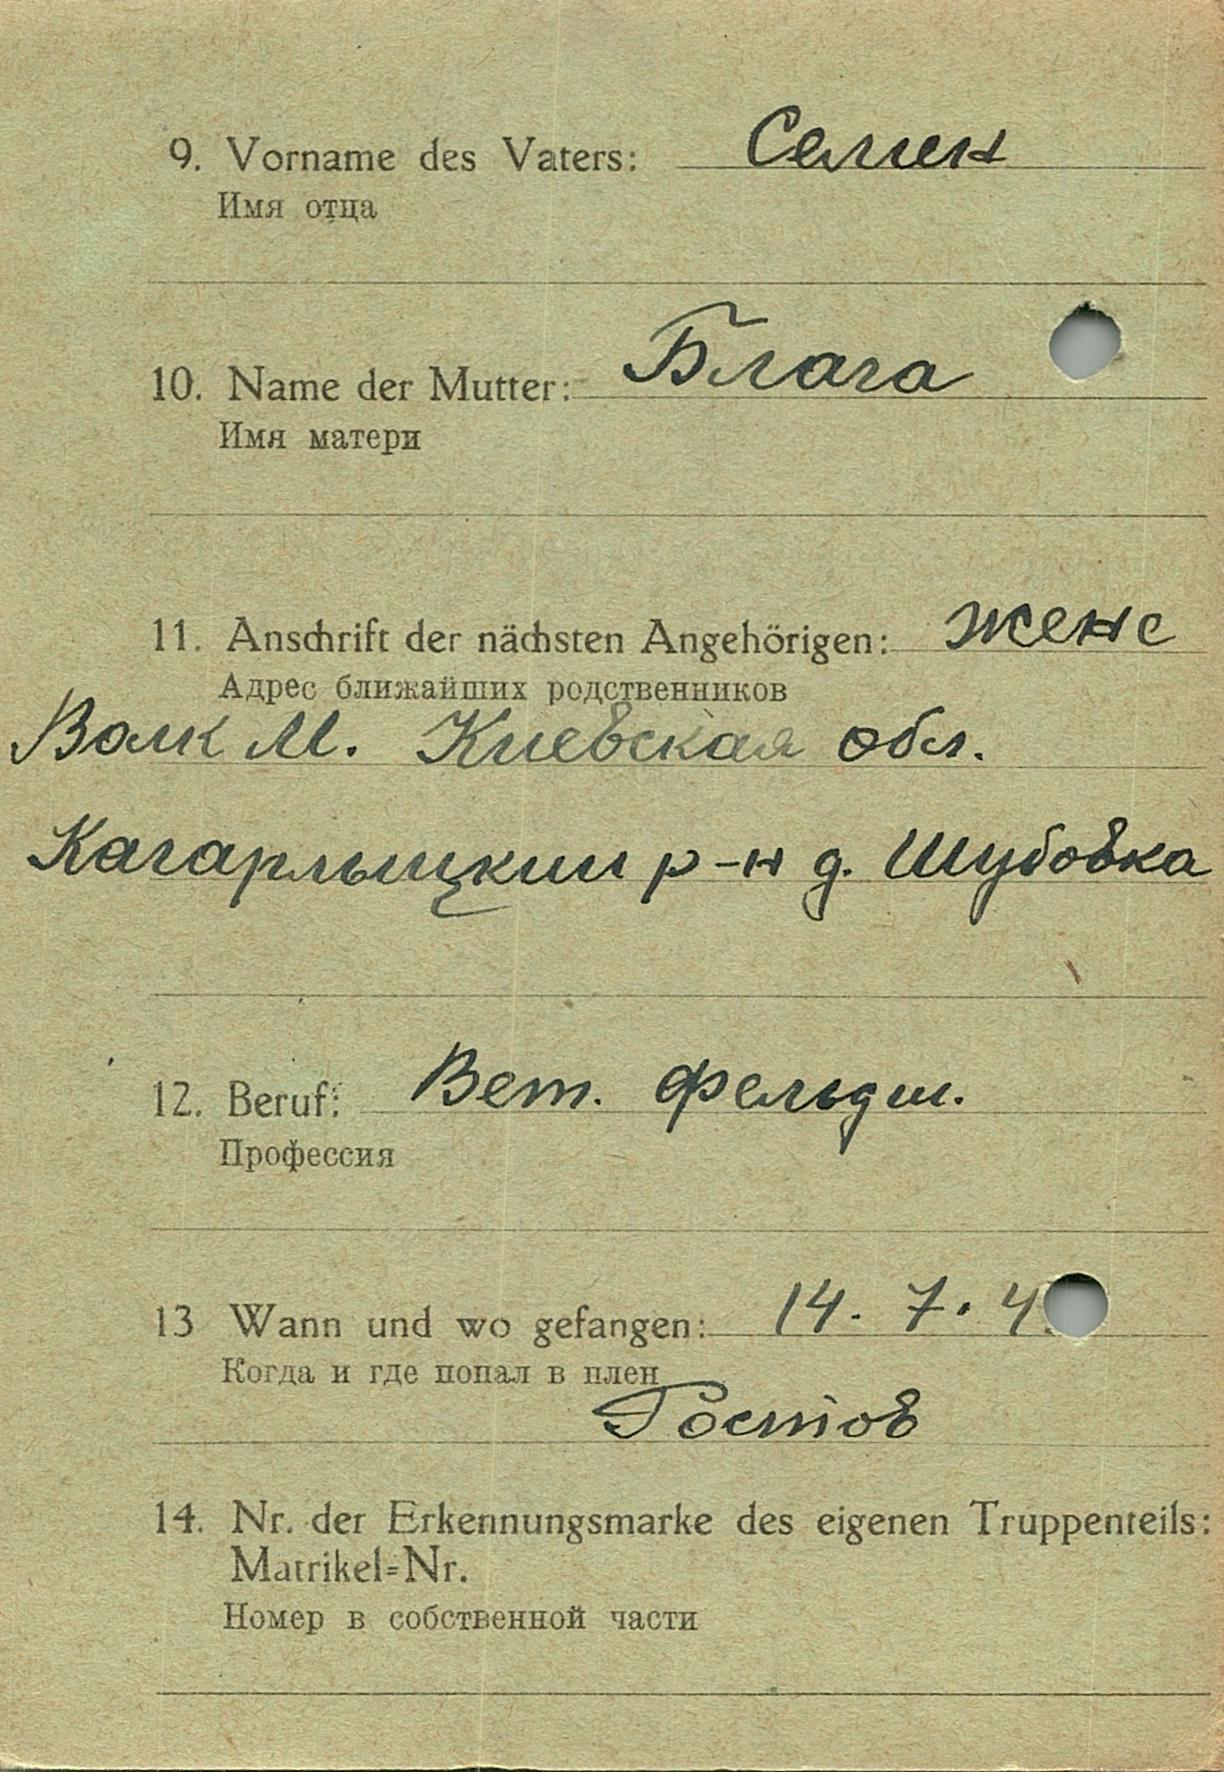 9. Vorname des Vaters: Семен
Имя отца
10. Name der Mutter: Блага
Имя матери
11. Anschrift der nächsten Angehörigen: жене
Адрес ближайших родственников
Волк М. Киевская обл.
Кагарлыцкии р-н д. Шубовка
12. Beruf: Вет. фельдш.
Профессия
13 Wann und wo gefangen: 14. 7. 4
Когда и где попал в плен
Ростов
14. Nr. der Erkennungsmarke des eigenen Truppenteils:
Matrikel=Nr.
Номер в собственной части